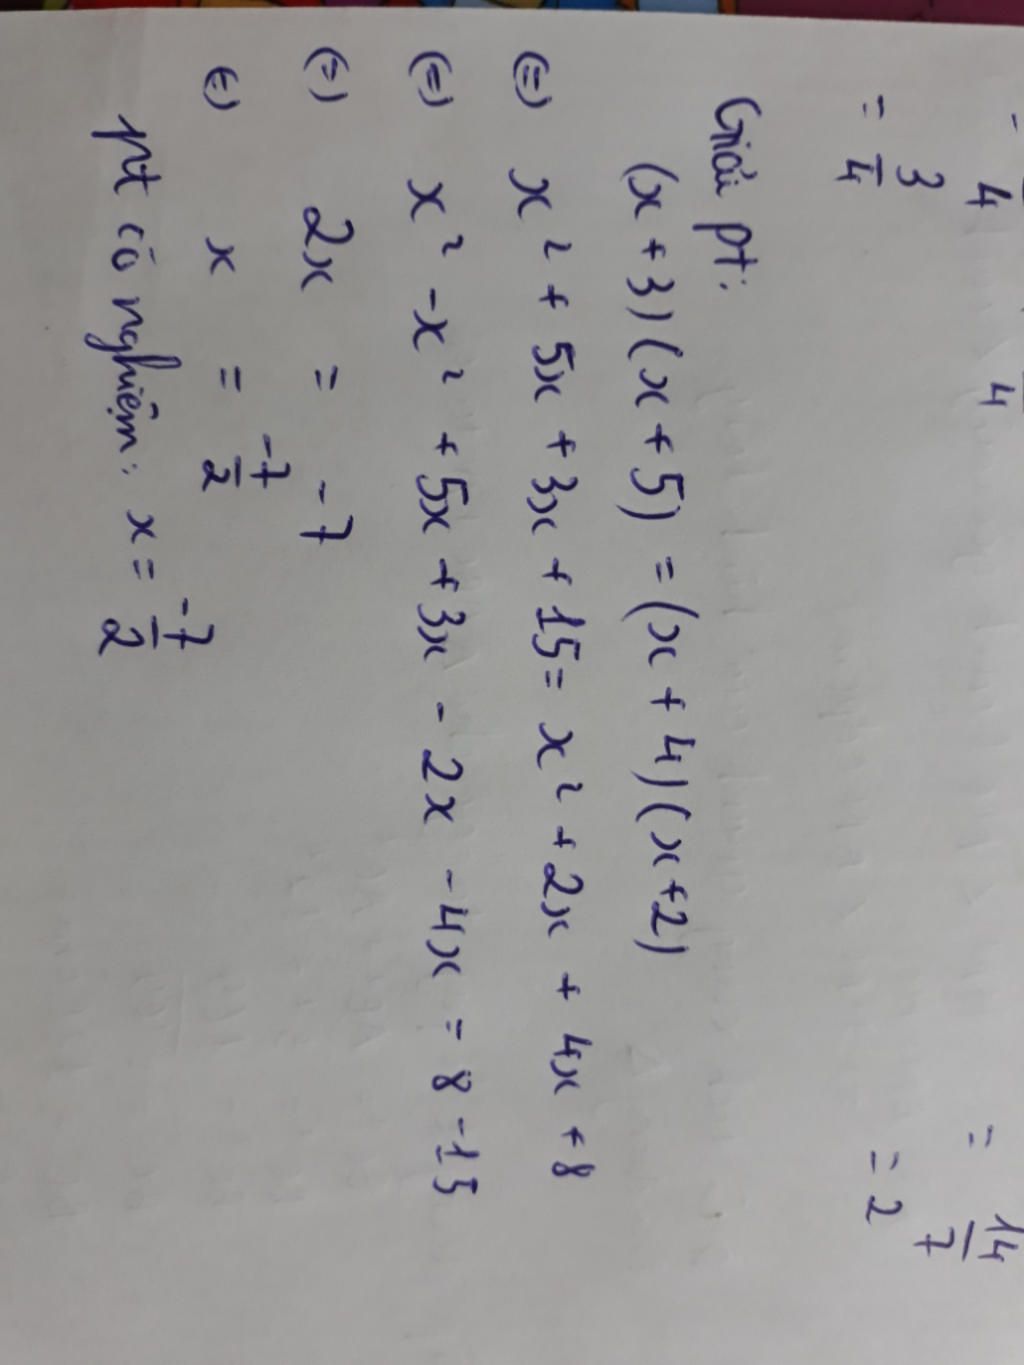 - 4 4
= 3/4
= 14/7
= 2
Giải pt:
(x + 3) (x + 5) = (x + 4) (x + 2)
(=) x² + 5x + 3x + 15 = x² + 2x + 4x + 8
(=) x² - x² + 5x + 3x - 2x - 4x = 8 - 15
(=) 2x = - 7
(=) x = -7/2
pt có nghiệm: x = -7/2